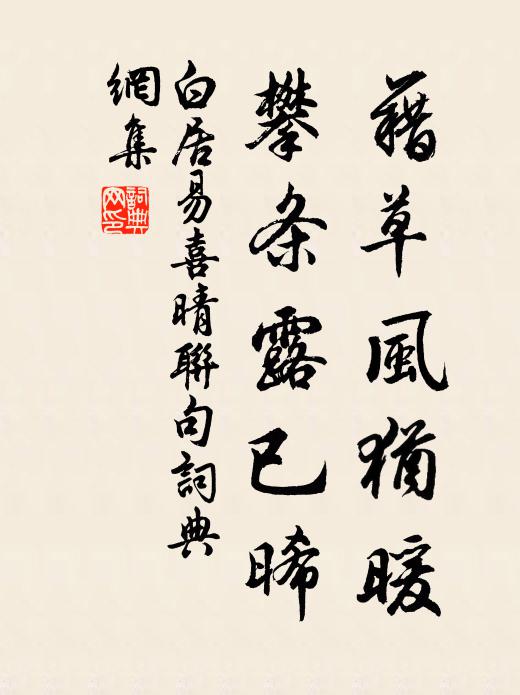 藉草風猶暖
攀条露已晞
白居易喜晴聯句詞典
網集
詞典
网印